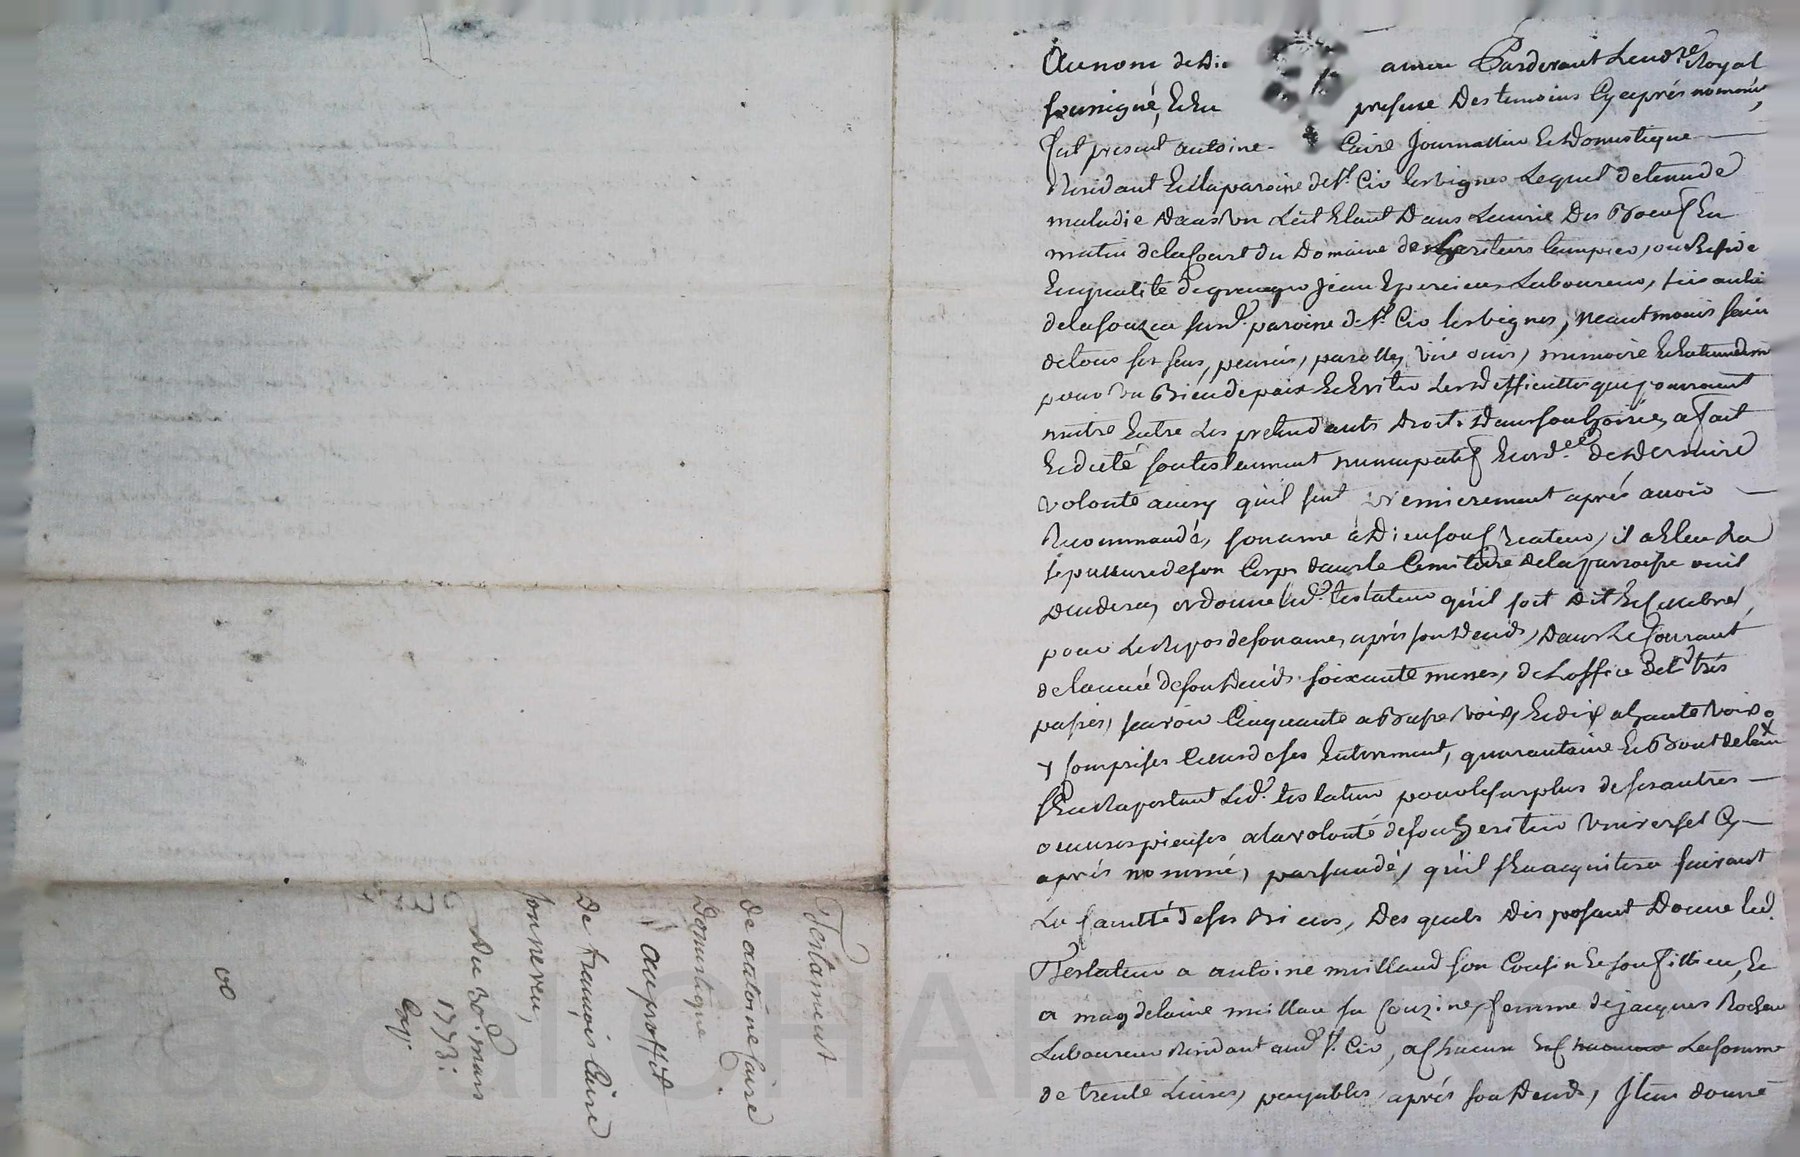 Au nom de Di amen Pardevant Le nore Royal
soussigné, Et En presence Des temoins Cy aprés nommés,
fut present antoine Caire Journallier Et Domestique
Residant En la paroisse de St. Cir les vignes Lequel detenu de
maladie Dans un Lit Etant Dans Lecurie Des Boeufs En
matin de la Court du Domaine des heritiers , ou Reside
En qualité de granger Jean Epercieux Laboureur,
de la susd. paroisse de St. Cir les vignes, neantmoins sain
de tous ses sens, pensées, parolles, vüe ouie, mémoire Et Entendem
pour Un Bien de paix Et Eviter Les difficultés qui pourraient
naitre Entre Les pretendants Droits Dans son hoirie, a fait
Et dicté son testament nuncupatif Et ord.ce de derniere
volonté ainsy qu'il suit premierement aprés avoir
Recommandé, son ame à Dieu son Createur, il a Eleu La
sepulture de son Corps dans le Cemitiere de la parroisse ou il
Decedera, ordonne led. testateur qu'il soit Dit Et Celebré,
pour Le Repos de son ame, aprés son Decés, Dans Le Courant
de l'année de son Decés soixante messes, de L'office des tres
passés, scavoir Cinquante a Basse voix, Et dix a haute voix
y Comprises Celles de ses Enterrement, quarantaine Et Bout de l'an
s'En Raportant Led. testateur pour le surplus de ses autres
oeuvres pieuses a la volonté de son heritier Universel Cy
aprés nommé, persuadé, qu'il s'En acquitera suivant
La faculté de ses Biens, Des quels Disposant Donne led.
Testateur a antoine meilland son Cousin Et son fillieu, Et
a magdelaine meillau sa Couzine, femme de jacques Rocheu
Laboureur Residant aud. St. Cir, a Chacun La somme
de trente Livres, payables aprés son Decés, Item donne
Testament
de antoine Caire
Domestique
au proffit
De francois Caire
son neveu,
Du 30e. mars
1773.
Exp.